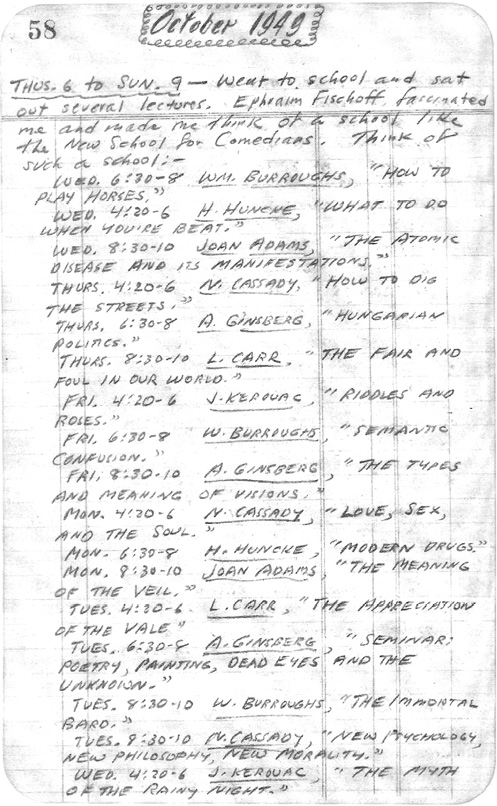 58
October 1949
THUS. 6 to SUN. 9 — Went to school and sat
out several lectures. Ephraim Fischoff fascinated
me and made me think of a school like
the New School for Comedians. Think of
such a school:-
WED. 6:30-8 WM. BURROUGHS, "HOW TO
PLAY HORSES."
WED. 4:20-6 H. HUNCKE, "WHAT TO DO
WHEN YOU'RE BEAT."
WED. 8:30-10 JOAN ADAMS, "THE ATOMIC
DISEASE AND ITS MANIFESTATIONS."
THURS. 4:20-6 N. CASSADY, "HOW TO DIG
THE STREETS."
THURS. 6:30-8 A. GINSBERG, "HUNGARIAN
POLITICS."
THURS. 8:30-10 L. CARR, "THE FAIR AND
FOUL IN OUR WORLD."
FRI. 4:20-6 J. KEROUAC, "RIDDLES AND
ROSES."
FRI. 6:30-8 W. BURROUGHS, "SEMANTIC
CONFUSION."
FRI. 8:30-10 A. GINSBERG, "THE TYPES
AND MEANING OF VISIONS."
MON. 4:20-6 N. CASSADY, "LOVE, SEX,
AND THE SOUL."
MON. 6:30-8 H. HUNCKE, "MODERN DRUGS."
MON. 8:30-10 JOAN ADAMS, "THE MEANING
OF THE VEIL."
TUES. 4:20-6 L. CARR, "THE APPRECIATION
OF THE VALE"
TUES. 6:30-8 A. GINSBERG, "SEMINAR:
POETRY, PAINTING, DEAD EYES AND THE
UNKNOWN."
TUES. 8:30-10 W. BURROUGHS, "THE IMMORTAL
BARD."
TUES. 8:30-10 N. CASSADY, "NEW PSYCHOLOGY,
NEW PHILOSOPHY, NEW MORALITY."
WED. 4:20-6 J. KEROUAC, "THE MYTH
OF THE RAINY NIGHT."